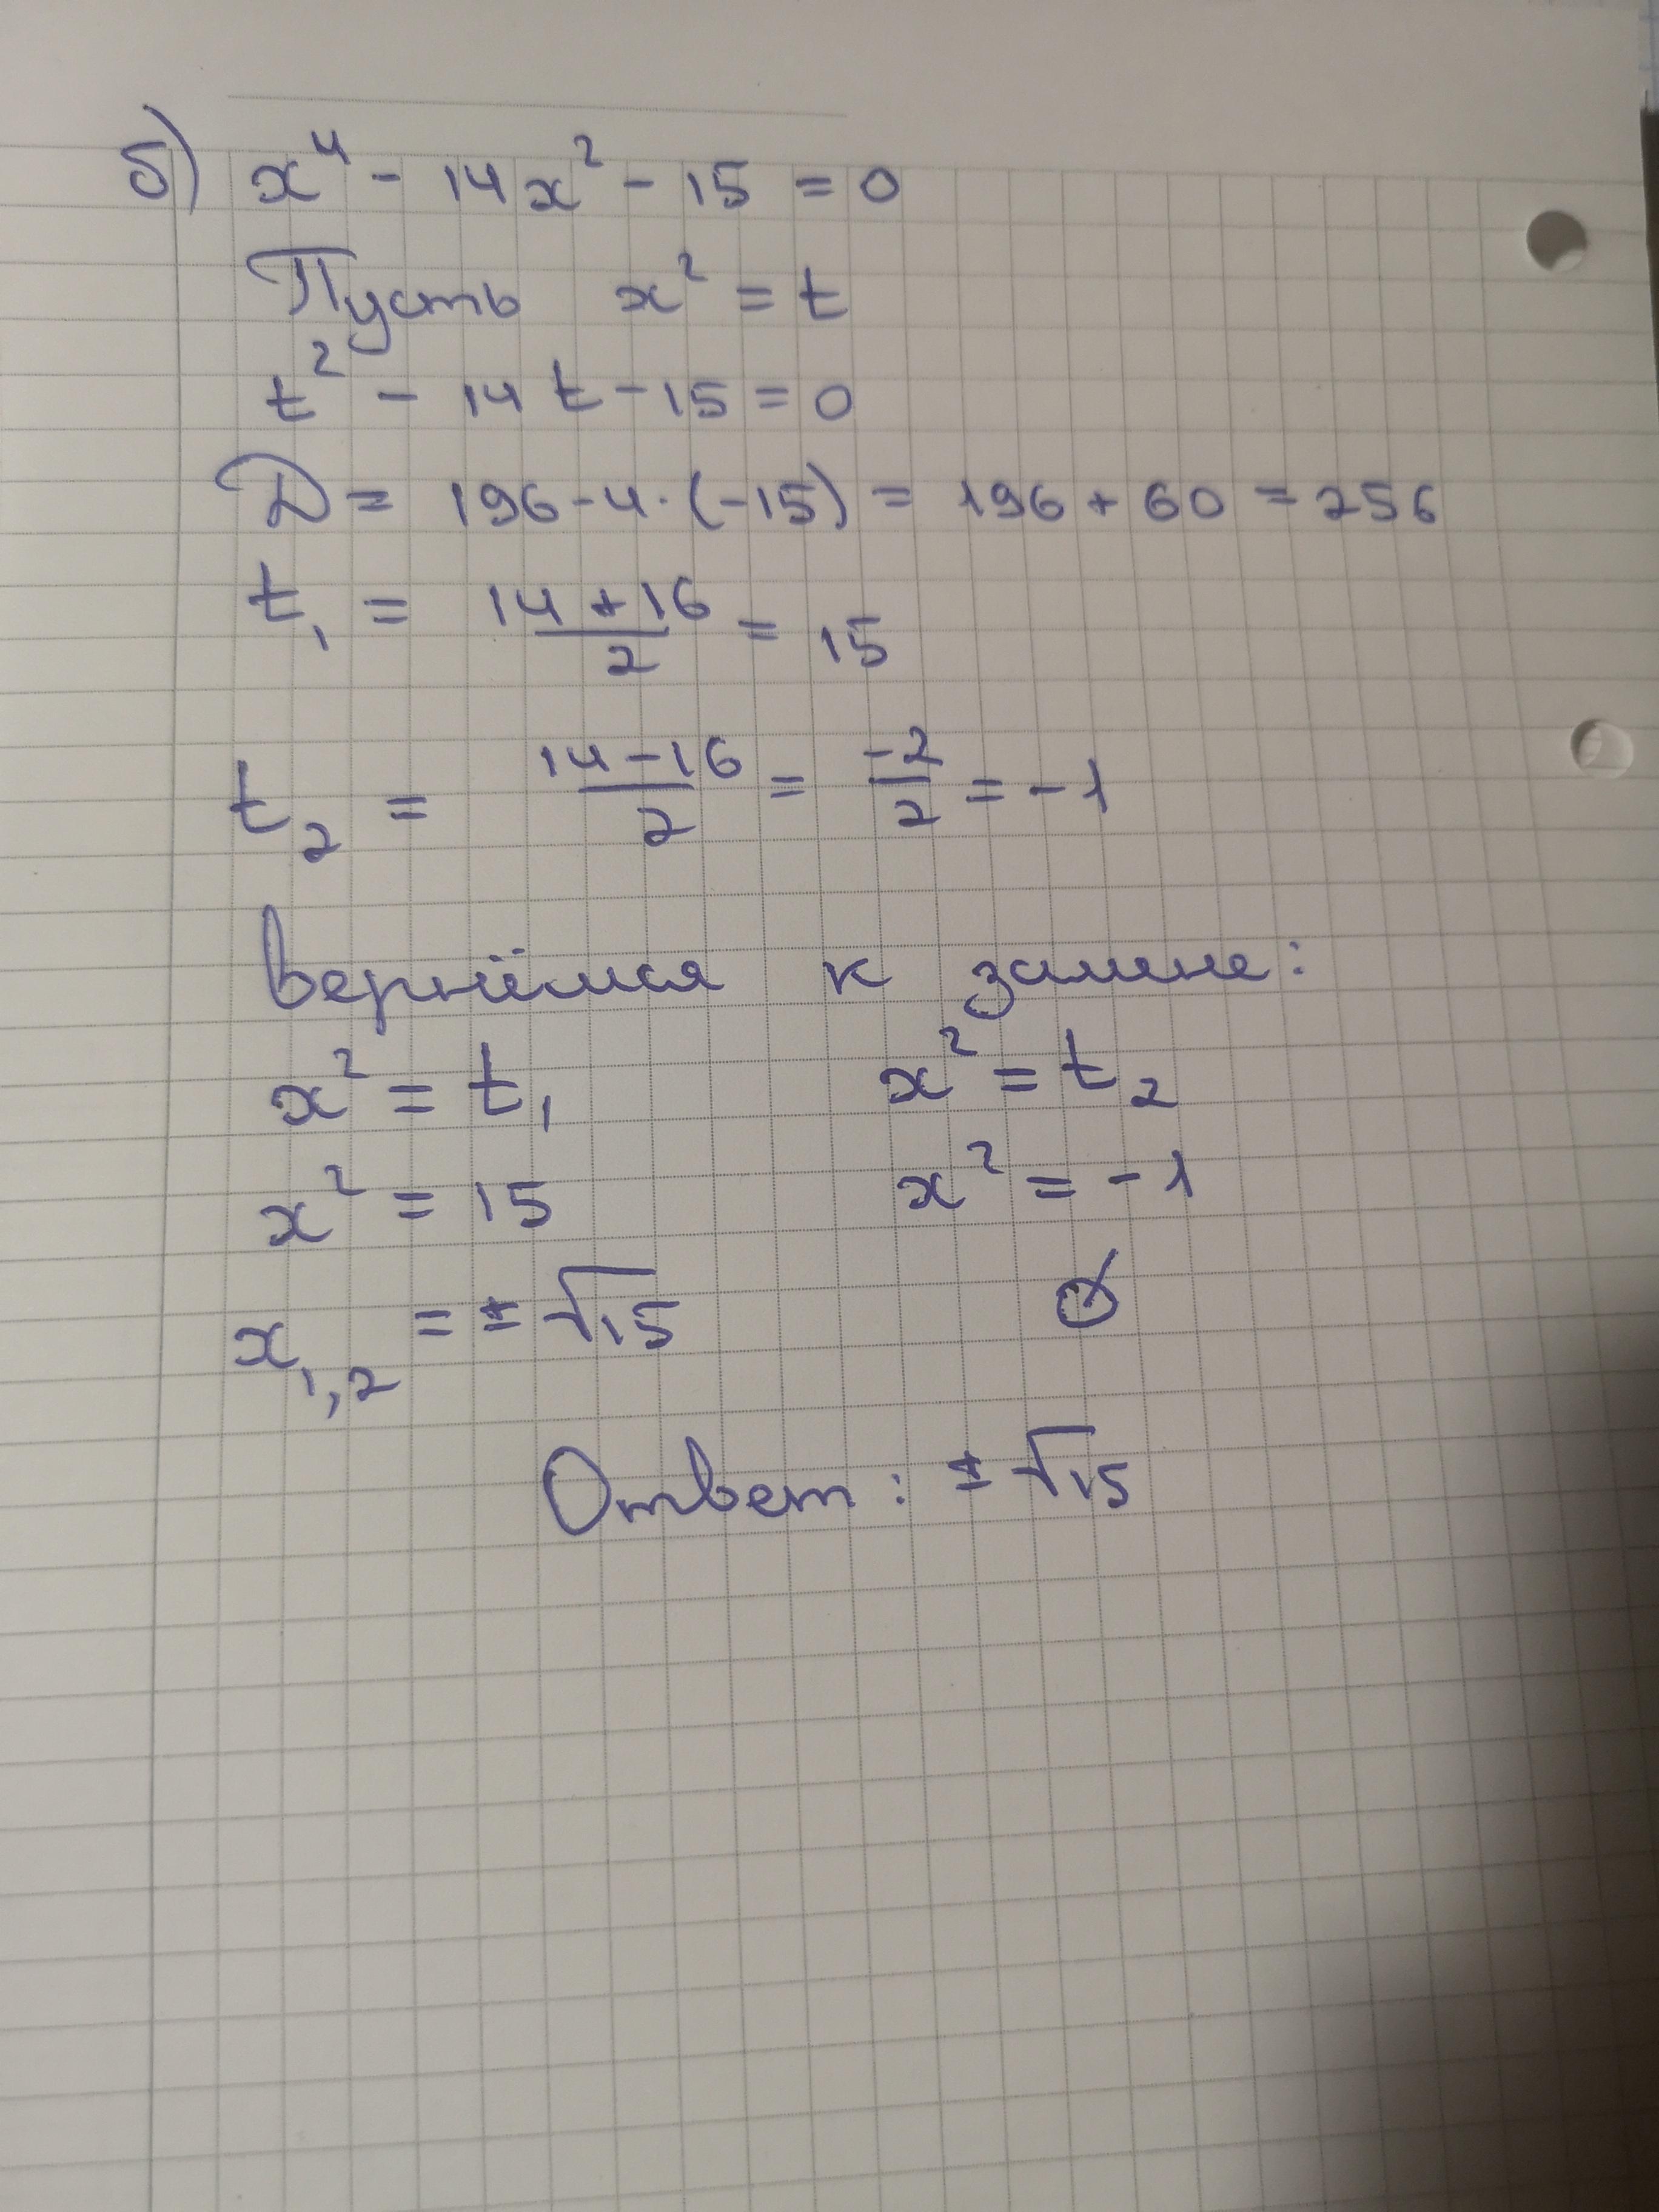 б) x⁴ - 14x² - 15 = 0
Пусть x² = t
t² - 14t - 15 = 0
D = 196 - 4·(-15) = 196 + 60 = 256
t₁ = (14 + 16)/2 = 15
t₂ = (14 - 16)/2 = -2/2 = -1
вернёмся к замене:
x² = t₁ x² = t₂
x² = 15 x² = -1
x₁,₂ = ± √15 ∅
Ответ: ± √15